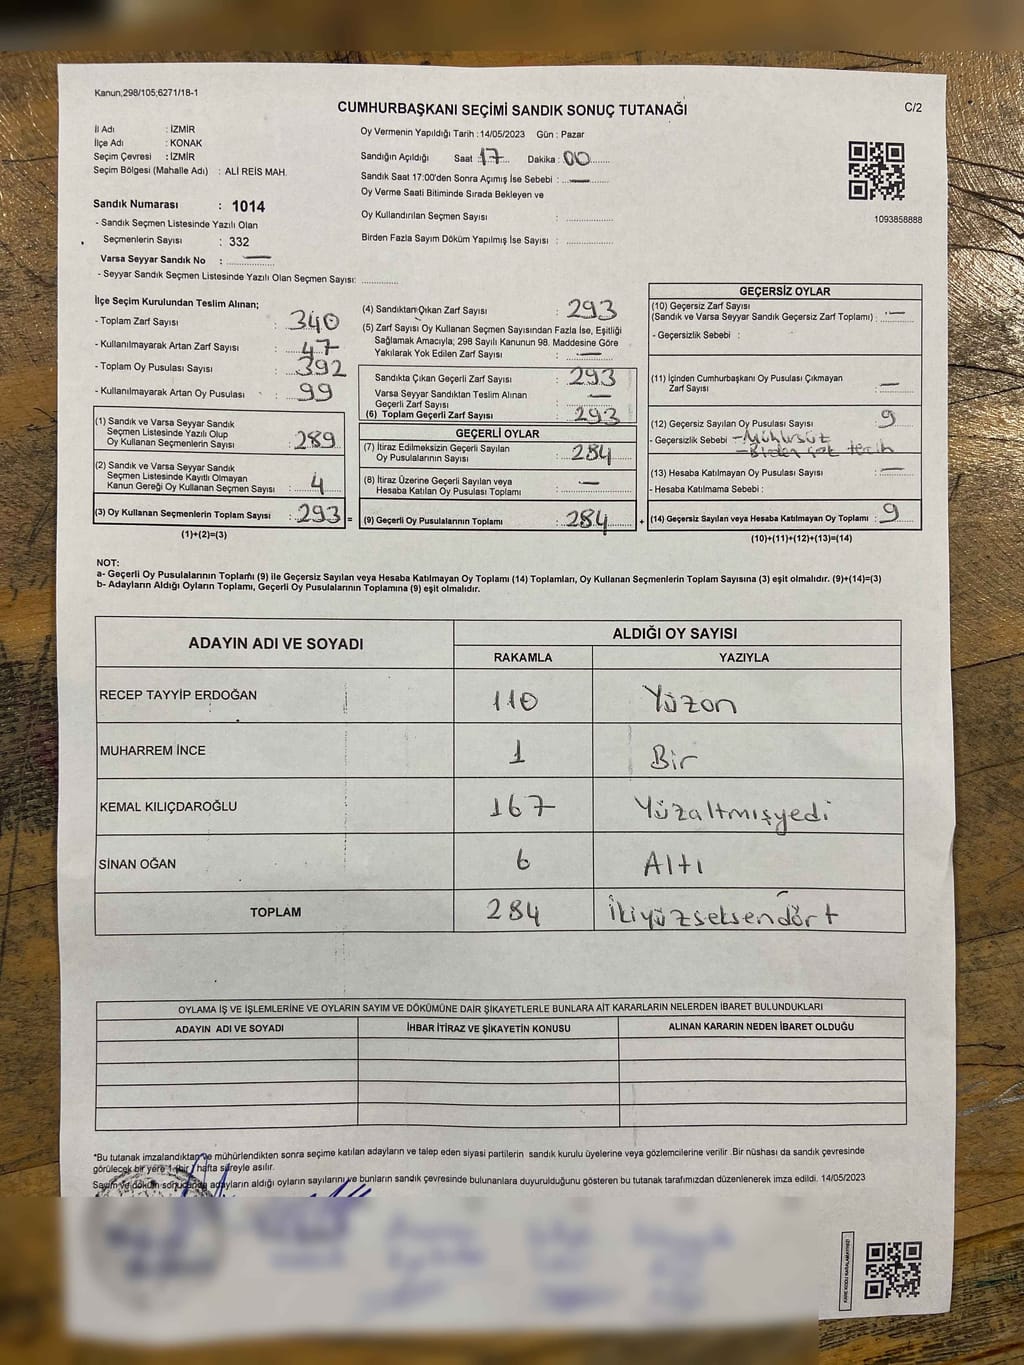 Kanun,298/105;6271/18-1
CUMHURBAŞKANI SEÇİMİ SANDIK SONUÇ TUTANAĞI
C/2
İl Adı : İZMİR
İlçe Adı : KONAK
Seçim Çevresi : İZMİR
Seçim Bölgesi (Mahalle Adı) : ALİ REİS MAH.
Sandık Numarası : 1014
- Sandık Seçmen Listesinde Yazılı Olan
Seçmenlerin Sayısı : 332
Varsa Seyyar Sandık No : —
- Seyyar Sandık Seçmen Listesinde Yazılı Olan Seçmen Sayısı: ............
Oy Vermenin Yapıldığı Tarih : 14/05/2023 Gün : Pazar
Sandığın Açıldığı Saat : 17 Dakika : 00
Sandık Saat 17:00'den Sonra Açımış İse Sebebi : —
Oy Verme Saati Bitiminde Sırada Bekleyen ve
Oy Kullandırılan Seçmen Sayısı : ............
Birden Fazla Sayım Döküm Yapılmış İse Sayısı : ............
1093858888
İlçe Seçim Kurulundan Teslim Alınan;
- Toplam Zarf Sayısı : 340
- Kullanılmayarak Artan Zarf Sayısı : 47
- Toplam Oy Pusulası Sayısı : 392
- Kullanılmayarak Artan Oy Pusulası : 99
(1) Sandık ve Varsa Seyyar Sandık
Seçmen Listesinde Yazılı Olup
Oy Kullanan Seçmenlerin Sayısı : 289
(2) Sandık ve Varsa Seyyar Sandık
Seçmen Listesinde Kayıtlı Olmayan
Kanun Gereği Oy Kullanan Seçmen Sayısı : 4
(3) Oy Kullanan Seçmenlerin Toplam Sayısı : 293 =
(1)+(2)=(3)
(4) Sandıktan Çıkan Zarf Sayısı : 293
(5) Zarf Sayısı Oy Kullanan Seçmen Sayısından Fazla İse, Eşitliği
Sağlamak Amacıyla; 298 Sayılı Kanunun 98. Maddesine Göre
Yakılarak Yok Edilen Zarf Sayısı : —
Sandıkta Çıkan Geçerli Zarf Sayısı : 293
Varsa Seyyar Sandıktan Teslim Alınan
Geçerli Zarf Sayısı : —
(6) Toplam Geçerli Zarf Sayısı : 293
GEÇERLİ OYLAR
(7) İtiraz Edilmeksizin Geçerli Sayılan
Oy Pusulalarının Sayısı : 284
(8) İtiraz Üzerine Geçerli Sayılan veya
Hesaba Katılan Oy Pusulası Toplamı : —
(9) Geçerli Oy Pusulalarının Toplamı : 284 +
GEÇERSİZ OYLAR
(10) Geçersiz Zarf Sayısı
(Sandık ve Varsa Seyyar Sandık Geçersiz Zarf Toplamı) : —
- Geçersizlik Sebebi :
(11) İçinden Cumhurbaşkanı Oy Pusulası Çıkmayan
Zarf Sayısı : —
(12) Geçersiz Sayılan Oy Pusulası Sayısı : 9
- Geçersizlik Sebebi - Mühürsüz
- Birden çok tercih
(13) Hesaba Katılmayan Oy Pusulası Sayısı : —
- Hesaba Katılmama Sebebi :
(14) Geçersiz Sayılan veya Hesaba Katılmayan Oy Toplamı : 9
(10)+(11)+(12)+(13)=(14)
NOT:
a- Geçerli Oy Pusulalarının Toplamı (9) ile Geçersiz Sayılan veya Hesaba Katılmayan Oy Toplamı (14) Toplamları, Oy Kullanan Seçmenlerin Toplam Sayısına (3) eşit olmalıdır. (9)+(14)=(3)
b- Adayların Aldığı Oyların Toplamı, Geçerli Oy Pusulalarının Toplamına (9) eşit olmalıdır.
ADAYIN ADI VE SOYADI ALDIĞI OY SAYISI
RAKAMLA YAZIYLA
RECEP TAYYİP ERDOĞAN 110 Yüzon
MUHARREM İNCE 1 Bir
KEMAL KILIÇDAROĞLU 167 Yüzaltmışyedi
SİNAN OĞAN 6 Altı
TOPLAM 284 İkiyüzseksendört
OYLAMA İŞ VE İŞLEMLERİNE VE OYLARIN SAYIM VE DÖKÜMÜNE DAİR ŞİKAYETLERLE BUNLARA AİT KARARLARIN NELERDEN İBARET BULUNDUKLARI
ADAYIN ADI VE SOYADI İHBAR İTİRAZ VE ŞİKAYETİN KONUSU ALINAN KARARIN NEDEN İBARET OLDUĞU
*Bu tutanak imzalandıktan ve mühürlendikten sonra seçime katılan adayların ve talep eden siyasi partilerin sandık kurulu üyelerine veya gözlemcilerine verilir .Bir nüshası da sandık çevresinde
görülecek bir yere 1 (bir) hafta süreyle asılır.
Sayım ve döküm sonucunda adayların aldığı oyların sayılarını ve bunların sandık çevresinde bulunanlara duyurulduğunu gösteren bu tutanak tarafımızdan düzenlenerek imza edildi. 14/05/2023